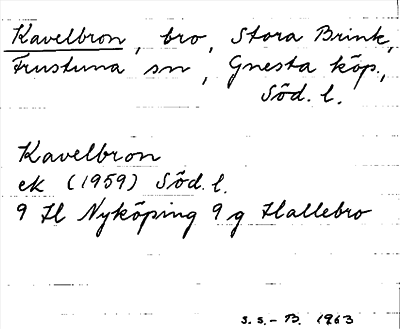 Kavelbron, bro, Stora Brink,
Frustuna sn, Gnesta köp.,
Söd. l.
Kavelbron
ek (1959) Söd. l.
9 H Nyköping 9 g Hallebro
S.S.-B. 1963